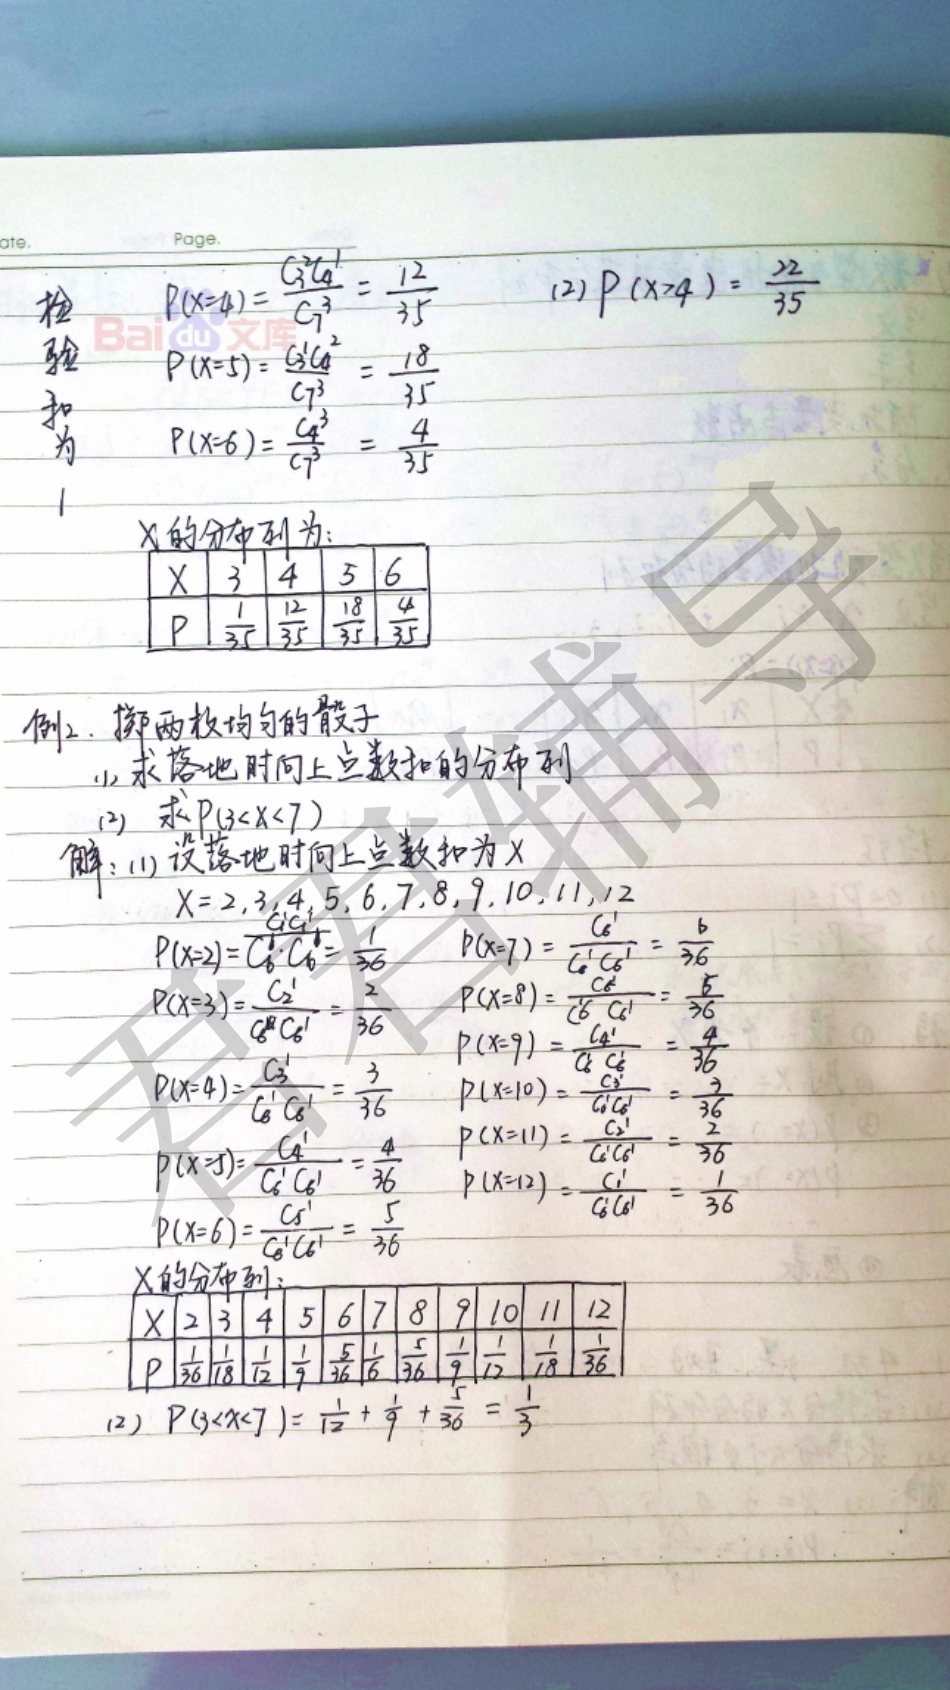 ate. Page.
检验和为1
P(X=4)=C₃²C₄¹/C₇³=12/35 (2) P(X>4)=22/35
Bai du 文库
P(X=5)=C₃¹C₄²/C₇³=18/35
P(X=6)=C₄³/C₇³=4/35
X的分布列为:
X 3 4 5 6
P 1/35 12/35 18/35 4/35
例2. 掷两枚均匀的骰子
(1) 求落地时向上点数和的分布列
(2) 求P(3<X<7)
解:(1) 设落地时向上点数和为X
X=2,3,4,5,6,7,8,9,10,11,12
P(X=2)=C₁¹C₁¹/C₆¹·C₆¹=1/36 P(X=7)=C₆¹/C₆¹C₆¹=6/36
P(X=3)=C₂¹/C₆¹C₆¹=2/36 P(X=8)=C₅¹/C₆¹C₆¹=5/36
P(X=9)=C₄¹/C₆¹C₆¹=4/36
P(X=4)=C₃¹/C₆¹C₆¹=3/36 P(X=10)=C₃¹/C₆¹C₆¹=3/36
P(X=5)=C₄¹/C₆¹C₆¹=4/36 P(X=11)=C₂¹/C₆¹C₆¹=2/36
P(X=12)=C₁¹/C₆¹C₆¹=1/36
P(X=6)=C₅¹/C₆¹C₆¹=5/36
X的分布列:
X 2 3 4 5 6 7 8 9 10 11 12
P 1/36 1/18 1/12 1/9 5/36 1/6 5/36 1/9 1/12 1/18 1/36
(2) P(3<X<7)=1/12+1/9+5/36=1/3
君君辅导